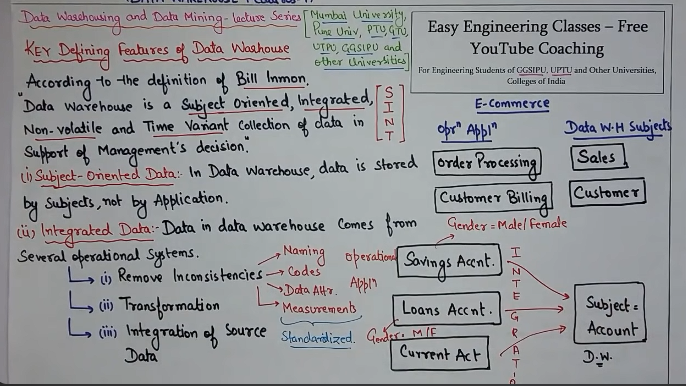 Data Warehousing and Data Mining - lecture Series
[Mumbai University,
Pune Univ, PTU, GTU,
UTPU, GGSIPU and
other Universities]
Easy Engineering Classes – Free
YouTube Coaching
For Engineering Students of GGSIPU, UPTU and Other Universities,
Colleges of India
Key Defining Features of Data Warehouse
According to the definition of Bill Inmon,
"Data Warehouse is a Subject Oriented, Integrated,
Non-volatile and Time Variant Collection of data in
Support of Management's decision."
[S
I
N
T]
(i) Subject-Oriented Data:- In Data Warehouse, data is stored
by Subjects, not by Application.
(ii) Integrated Data:- Data in data warehouse comes from
Several operational Systems.
(i) Remove Inconsistencies
Naming
Codes
Data Attr.
Measurements
Standardized.
(ii) Transformation
(iii) Integration of Source
Data
E-Commerce
Oprⁿ Applⁿ
Data W.H Subjects
Order Processing
Sales
Customer Billing
Customer
Gender = Male/Female
operational
Applⁿ
Savings Accnt.
Loans Accnt.
Gender = M/F
Current Act
I
N
T
E
G
R
A
T
Subject =
Account
D.W.